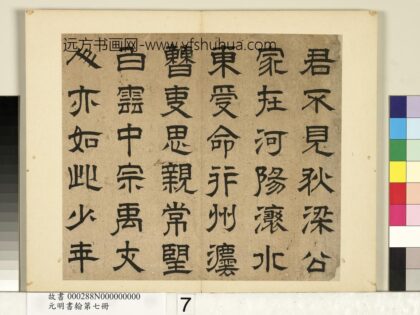 远方书画网-www.yfshuhua.com
君不見狄梁公
家在河陽瀍水
東受命并州灋
曹吏思親常望
白雲中宗禹丈
人亦如此少年
故書 000288N000000000
元明書翰第七冊
7